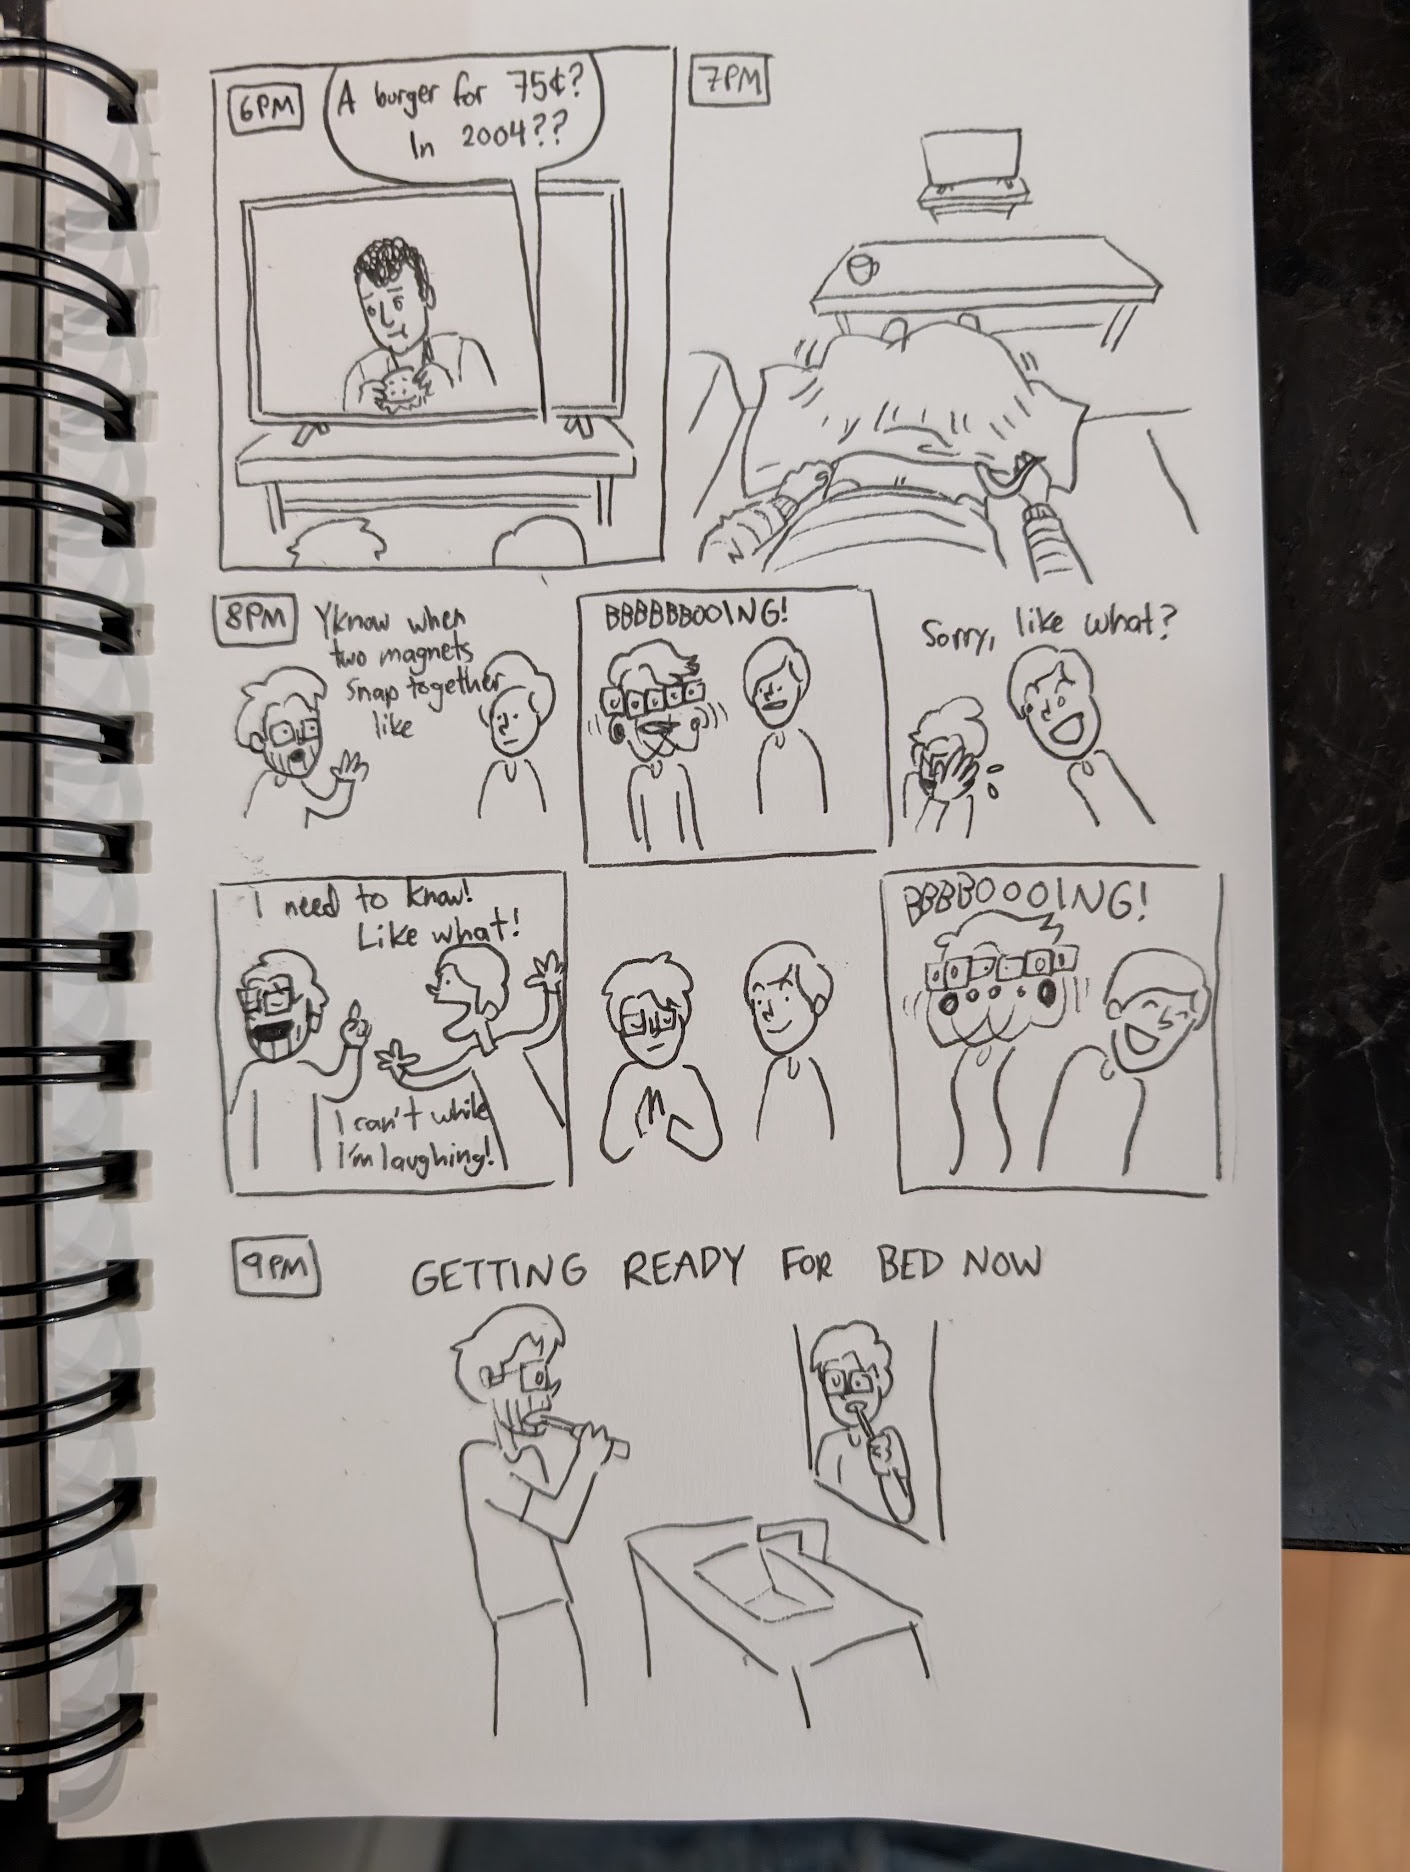 6PM
A burger for 75¢?
In 2004??
7PM
8PM
Yknow when
two magnets
snap together
like
BBBBBBOOING!
Sorry, like what?
I need to know!
Like what!
I can't while
I'm laughing!
BBBBOOOING!
9PM
GETTING READY FOR BED NOW